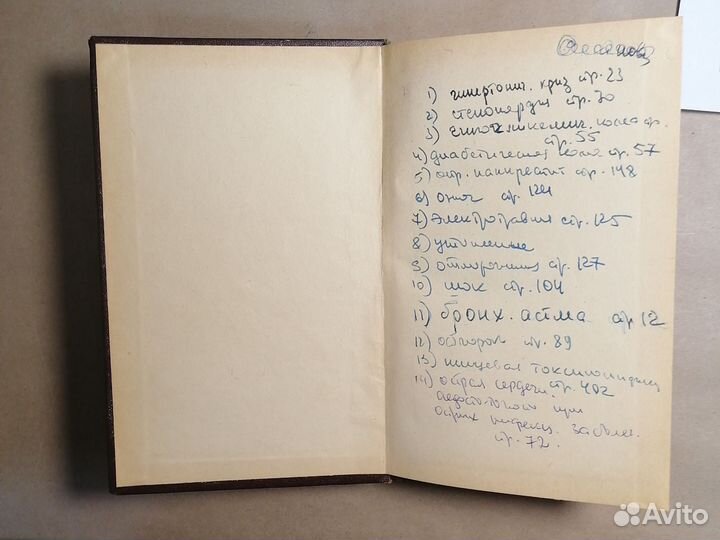 1) гипертонич. криз стр. 23
2) стенокардия стр. 30
3) гипогликемич. кома стр.
стр. 55
4) диабетическая кома стр. 57
5) остр. панкреатит стр. 148
6) ожог стр.
7) электротравма стр. 125
8) утопление
9) отморожения стр. 127
10) шок стр. 104
11) бронх. астма стр 12
12) стр. 89
13) пищевая токсикоинфекц
стр. 402
14) острая сердечн.
недостаточность при
острых инфекц. заболев.
стр. 72.
Avito